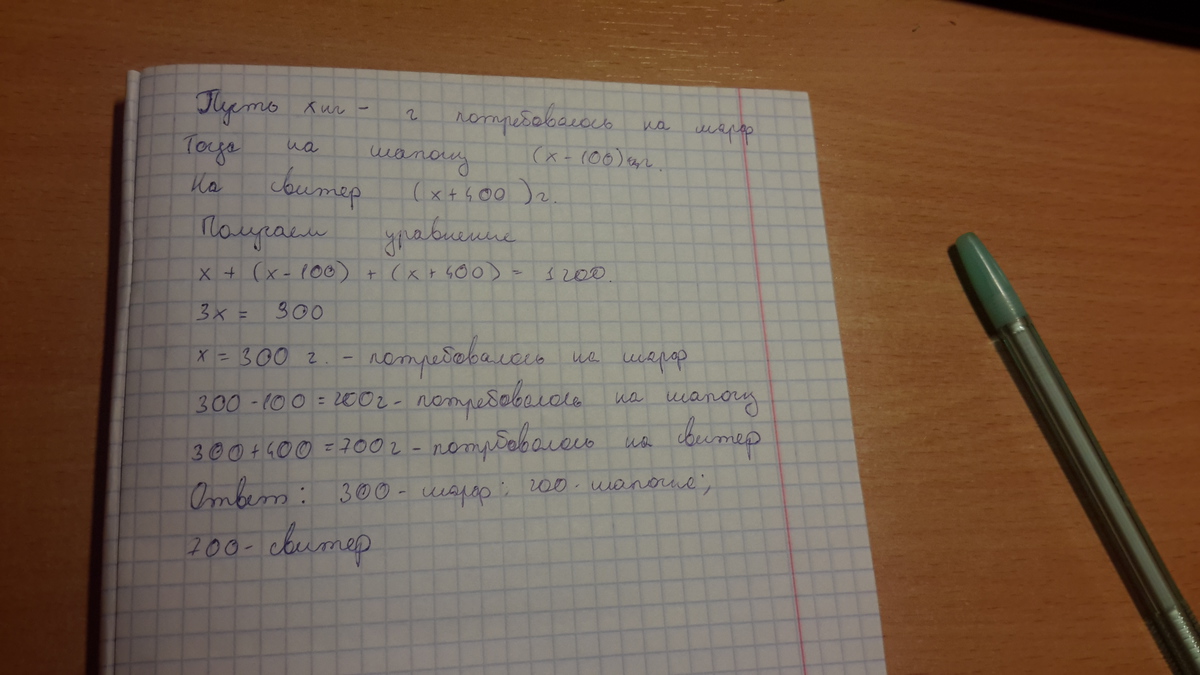 Пусть х г - г потребовалось на шарф
Тогда на шапочку (х-100) г.
На свитер (х+400) г.
Получаем уравнение
х + (х-100) + (х+400) = 1200.
3х = 900
х = 300 г. - потребовалось на шарф
300-100=200г - потребовалось на шапочку
300+400=700г - потрбовалось на свитер
Ответ: 300 - шарф; 200 - шапочка;
700 - свитер